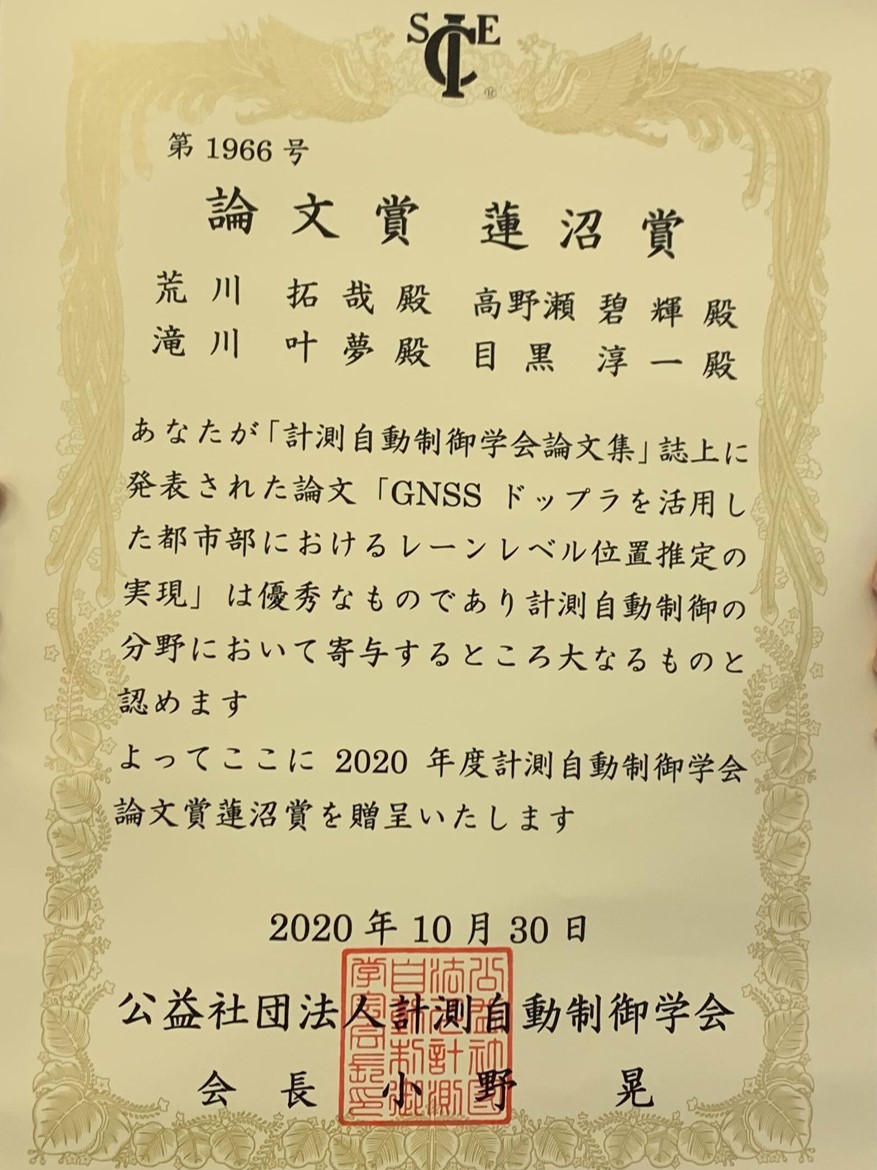 SICE
第 1966 号
論文賞 蓮沼賞
荒川 拓哉殿 高野瀬 碧輝殿
滝川 叶夢殿 目黒 淳一殿
あなたが「計測自動制御学会論文集」誌上に
発表された論文「GNSS ドップラを活用し
た都市部におけるレーンレベル位置推定の
実現」は優秀なものであり計測自動制御の
分野において寄与するところ大なるものと
認めます
よってここに 2020 年度計測自動制御学会
論文賞蓮沼賞を贈呈いたします
2020 年 10 月 30 日
公益社団法人計測自動制御学会
会長 小野 晃
公益社団
法人計測
自動制御
学会会長印